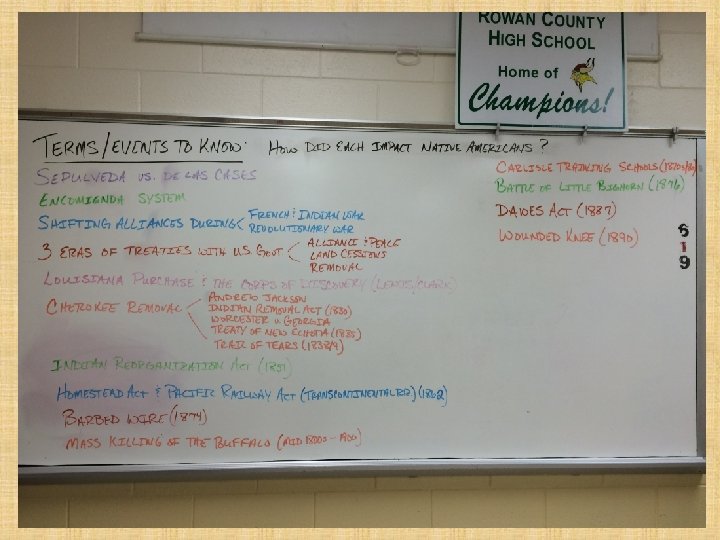 ROWAN COUNTY
HIGH SCHOOL
Home of
Champions!
TERMS/EVENTS TO KNOW: HOW DID EACH IMPACT NATIVE AMERICANS?
SEPULVEDA VS. DE LAS CASES
ENCOMIENDA SYSTEM
SHIFTING ALLIANCES DURING
FRENCH & INDIAN WAR
REVOLUTIONARY WAR
3 ERAS OF TREATIES WITH U.S. GOVT
ALLIANCE & PEACE
LAND CESSIONS
REMOVAL
LOUISIANA PURCHASE & THE CORPS OF DISCOVERY (LEWIS/CLARK)
CHEROKEE REMOVAL
ANDREW JACKSON
INDIAN REMOVAL ACT (1830)
WORCESTER v. GEORGIA
TREATY OF NEW ECHOTA (1835)
TRAIL OF TEARS (1838/9)
INDIAN REORGANIZATION ACT (1851)
HOMESTEAD ACT & PACIFIC RAILWAY ACT (TRANSCONTINENTAL RR) (1862)
BARBED WIRE (1874)
MASS KILLING OF THE BUFFALO (MID 1800s - 1900)
CARLISLE TRAINING SCHOOLS
BATTLE OF LITTLE BIGHORN (1876)
DAWES ACT (1887)
WOUNDED KNEE (1890)
6
1
9